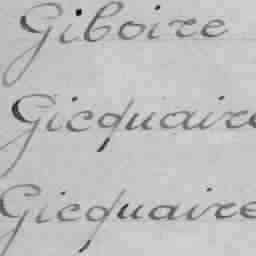 Giboire
Gicquaire
Gicquaire